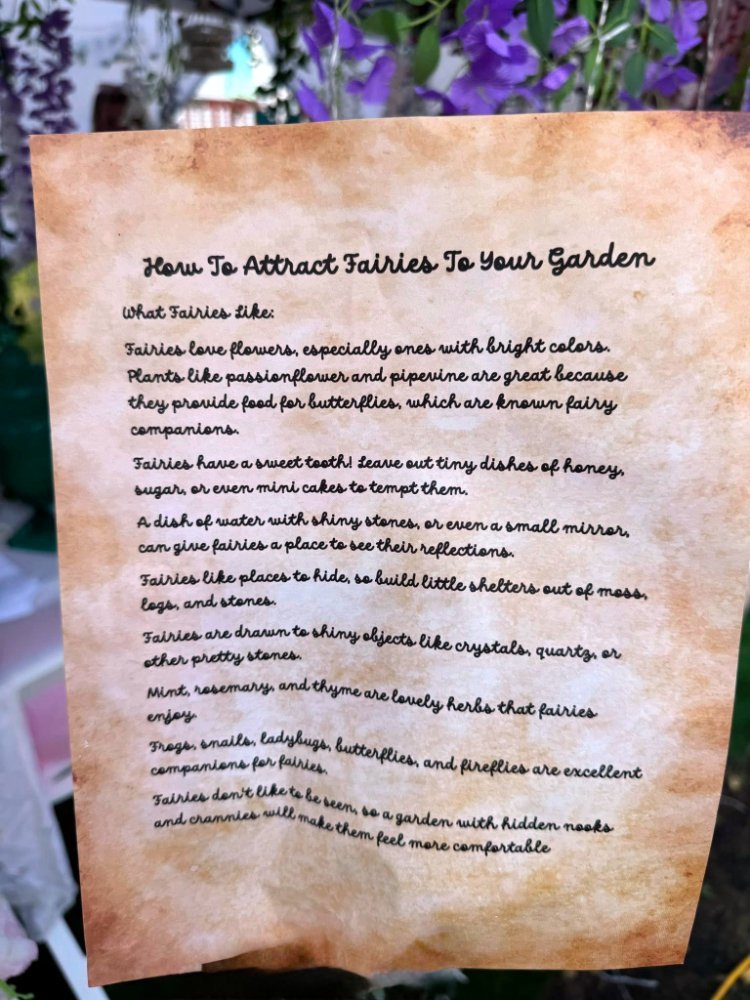 How To Attract Fairies To Your Garden
What Fairies Like:
Fairies love flowers, especially ones with bright colors.
Plants like passionflower and pipevine are great because
they provide food for butterflies, which are known fairy
companions.
Fairies have a sweet tooth! Leave out tiny dishes of honey,
sugar, or even mini cakes to tempt them.
A dish of water with shiny stones, or even a small mirror,
can give fairies a place to see their reflections.
Fairies like places to hide, so build little shelters out of moss,
logs, and stones.
Fairies are drawn to shiny objects like crystals, quartz, or
other pretty stones.
Mint, rosemary, and thyme are lovely herbs that fairies
enjoy.
Frogs, snails, ladybugs, butterflies, and fireflies are excellent
companions for fairies.
Fairies don't like to be seen, so a garden with hidden nooks
and crannies will make them feel more comfortable